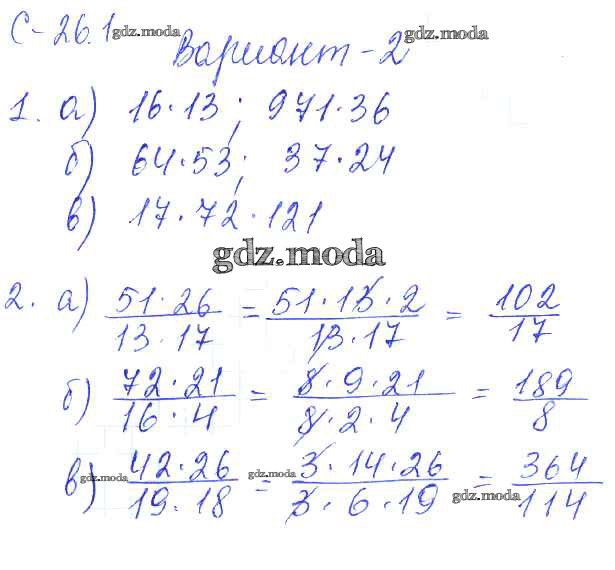 С-26.1 gdz.moda
Вариант-2 gdz.moda
1. а) 16·13; 971·36
б) 64·53; 37·24
в) 17·72·121
gdz.moda
2. а) 51·26/13·17 = 51·13·2/13·17 = 102/17
б) 72·21/16·4 = 8·9·21/8·2·4 = 189/8
в) 42·26/19·18 = 3·14·26/3·6·19 = 364/114
gdz.moda gdz.moda gdz.moda